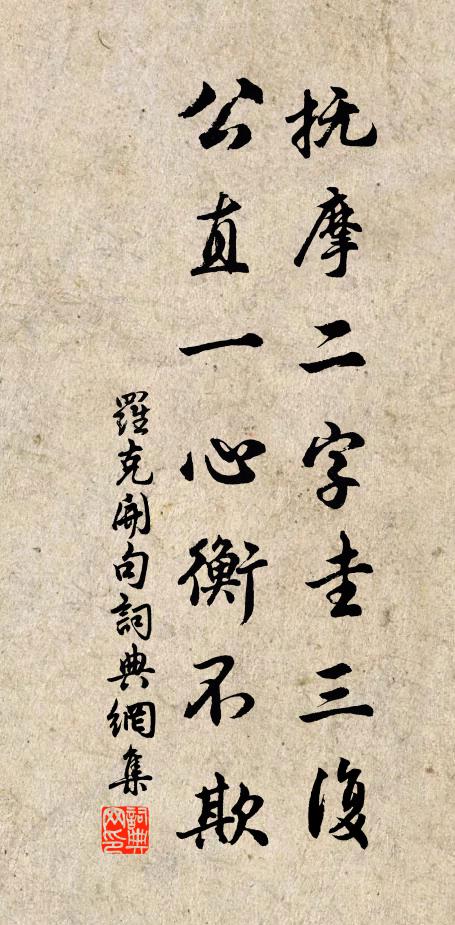 抚摩二字圭三復
公直一心衡不欺
羅克開句詞典網集
詞典網印